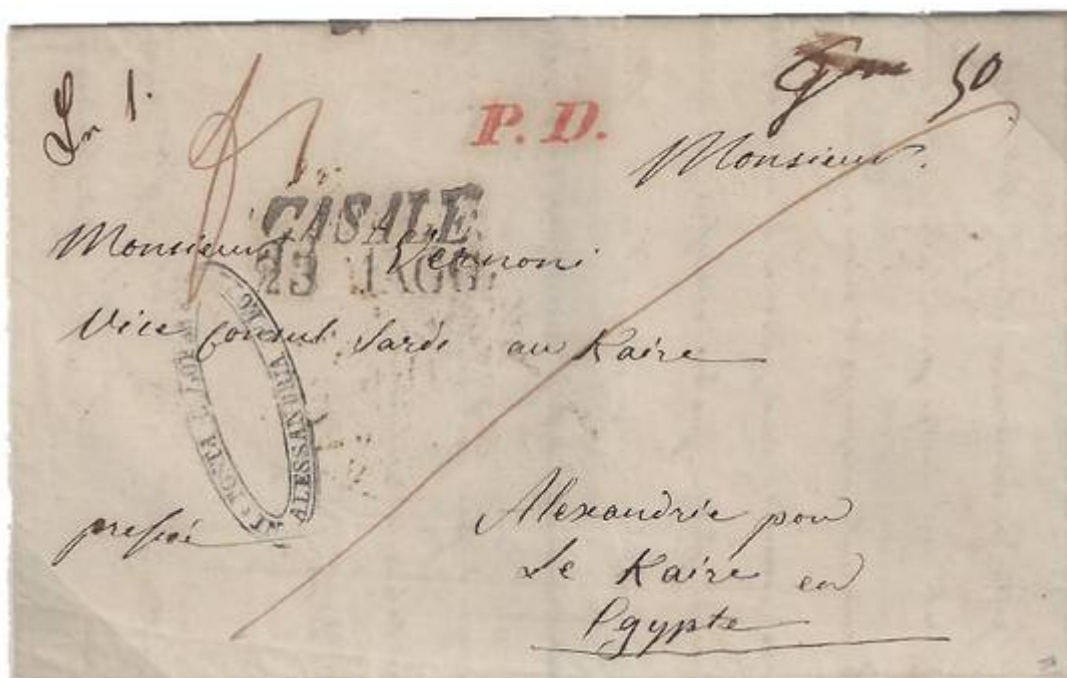 1.
P. D.
50
Monsieur.
CASALE
23 MAGG.
Monsieur Vernoni
Vice Consul Sarde au Kaire
POSTA
ALESSANDRIA
pressé
Alexandrie pour
Le Kaire en
Egypte